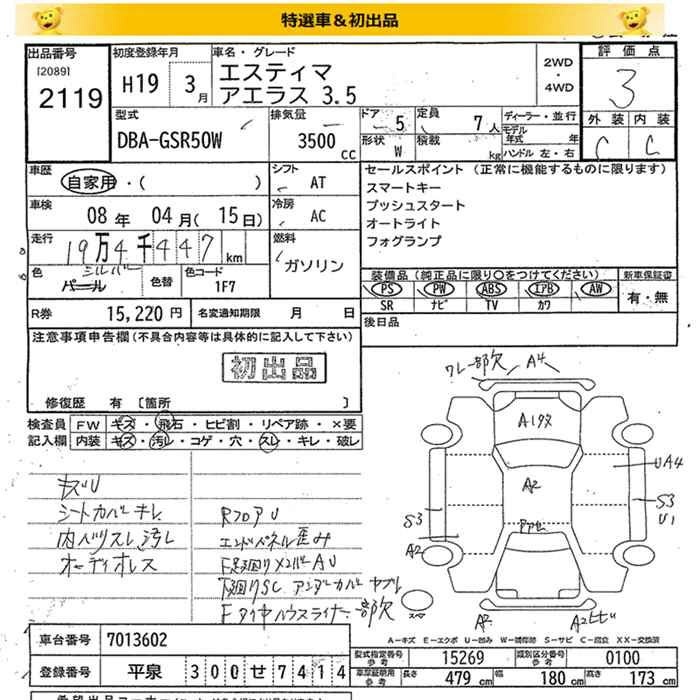 特選車＆初出品
出品番号 [2089] 2119
初度登録年月 H19 3月
車名・グレード エスティマ アエラス 3.5
2WD・4WD
評価点 3
外装 C 内装 C
型式 DBA-GSR50W
排気量 3500 CC
ドア 5 定員 7人
形状 W 積載 kg
ディーラー・並行
モデル年式 年
ハンドル 左・右
車歴 自家用・( )
車検 08年 04月(15日)
走行 19万4千447km
色 パール シルバー 色替 色コード 1F7
シフト AT
冷房 AC
燃料 ガソリン
セールスポイント (正常に機能するものに限ります)
スマートキー
プッシュスタート
オートライト
フォグランプ
装備品(純正品に限り○をつけてください)
PS PW ABS エアB AW
SR ナビ TV カワ
新車保証書 有・無
R券 15,220円 名変通知期限 月 日
後日品
注意事項申告欄(不具合内容等は具体的に記入して下さい)
初出品
修復歴 有 [箇所 ]
検査員記入欄
FW キズ・飛石・ヒビ割・リペア跡・×要
内装 キズ・汚レ・コゲ・穴・スレ・キレ・破レ
キズU
シートカバーキレ
内ベリスレ汚レ
オーディオレス
RフロアU
エンドパネル歪み
F足廻りメンバーAU
下廻りSC アンダーカバーヤブレ
Fタイヤハウスライナー一部欠
フレ一部欠 A4
A1タメ
A2
UA4
S3
U1
S3
A2
A2
A2ヒビ
A－キズ E－エクボ U－凹み W－補修跡 S－サビ C－腐食 XX－交換済
車台番号 7013602
登録番号 平泉 300せ7414
型式指定番号 参考 15269 類別区分番号 参考 0100
車庫証明用 参考 長さ 479 cm 幅 180 cm 高さ 173 cm